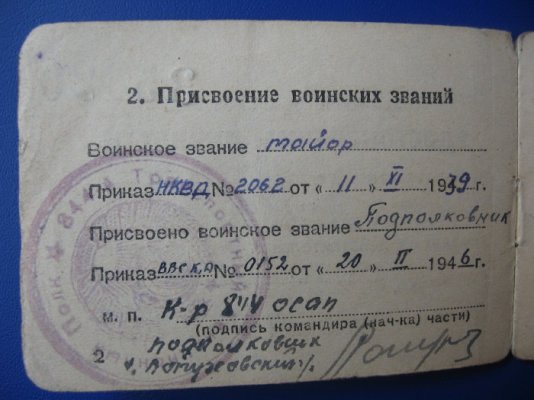 2. Присвоение воинских званий
Воинское звание майор
Приказ НКВД № 2062 от « 11 » XI 1939 г.
Присвоено воинское звание Подполковник
Приказ ВВС К.А № 0152 от « 20 » II 1946 г.
м. п. К-р 844 осап
(подпись командира (нач-ка) части)
2 подполковник
844 Транспортный
Полк